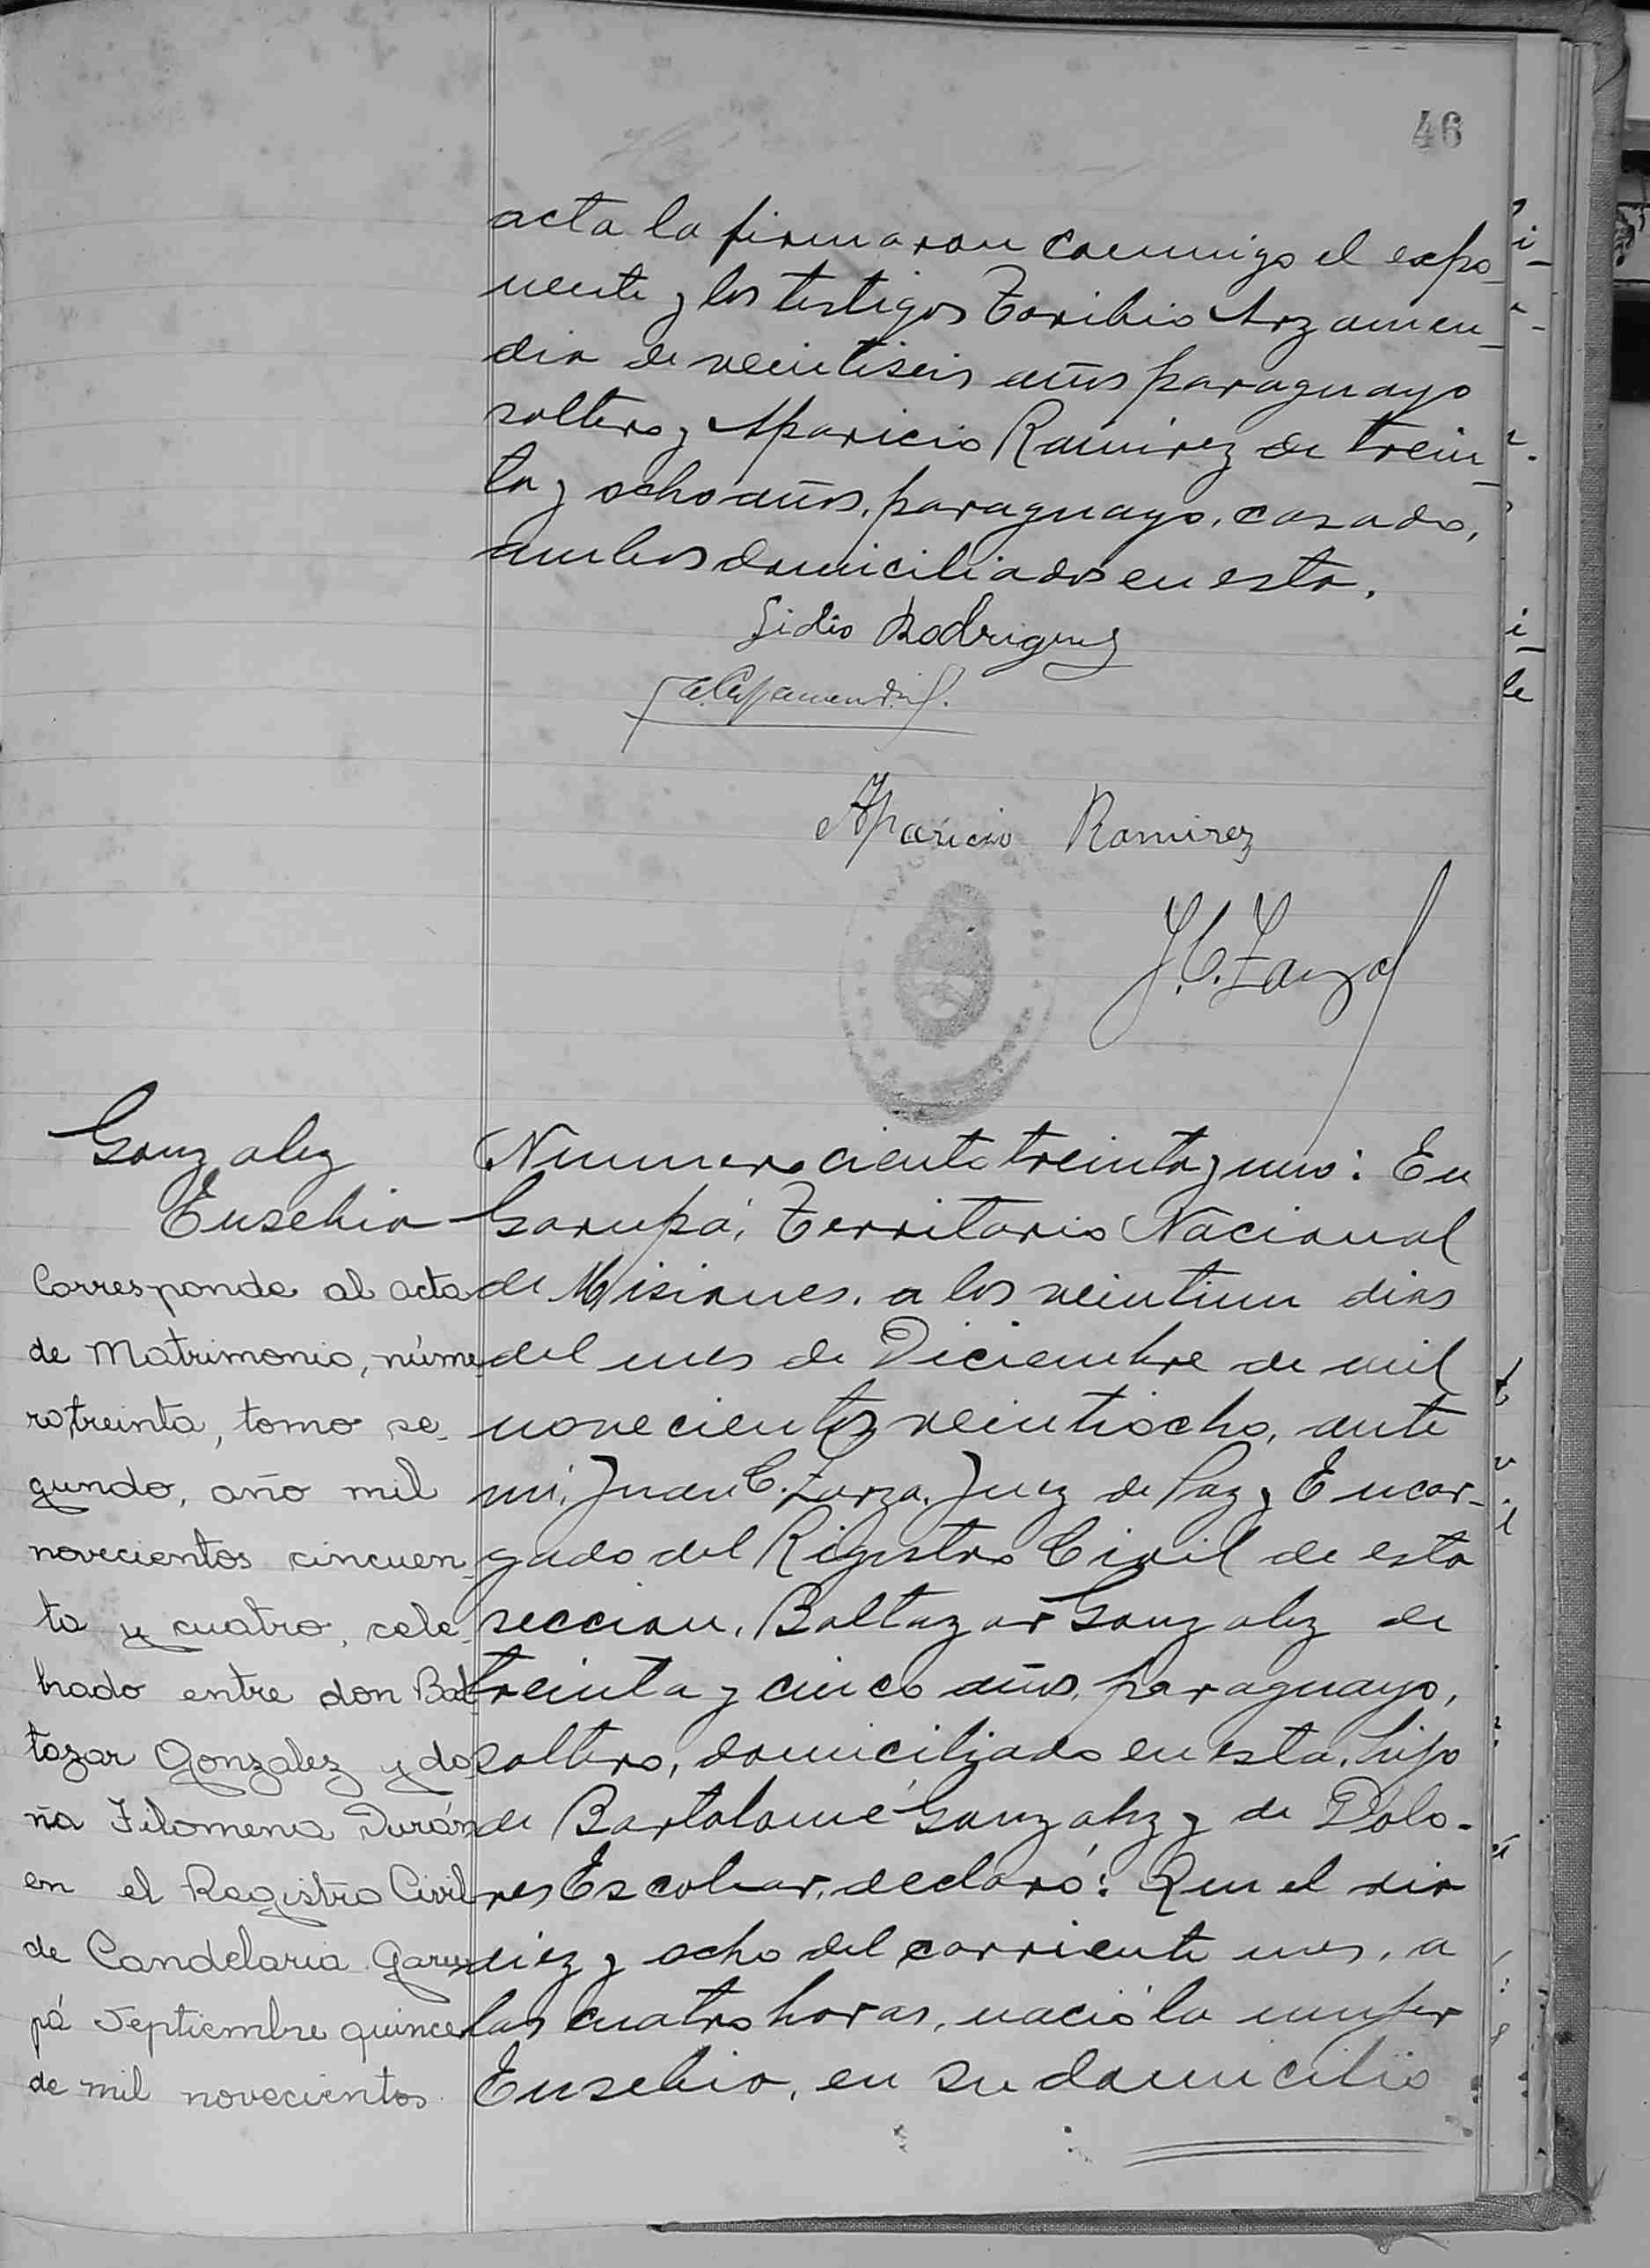 46
acta la firmaron conmigo el expo-
nente y los testigos Toribio Arzamen-
dia de veintiseis años paraguayo
soltero y Aparicio Ramirez de trein-
ta y ocho años, paraguayo, casado,
ambos domiciliados en esta.
Sidio Rodriguez
Aparicio Ramirez
J. C. Zarza
Gonzalez
Eusebia
Corresponde al acta
de Matrimonio, núme-
ro treinta, tomo se-
gundo, año mil
novecientos cincuen-
ta y cuatro, cele-
brado entre don Bal-
tazar Gonzalez y do-
ña Filomena Durán
en el Registro Civil
de Candelaria Garu-
pá Septiembre quince
de mil novecientos
Numero ciento treinta y uno: En
Garupá, Territorio Nacional
de Misiones, a los veintiun dias
del mes de Diciembre de mil
novecientos veintiocho, ante
mi, Juan C. Zarza, Juez de Paz y Encar-
gado del Registro Civil de esta
seccion, Baltazar Gonzalez de
treinta y cinco años, paraguayo,
soltero, domiciliado en esta, hijo
de Bartolomé Gonzalez y de Dolo-
res Escobar, declaró: Que el dia
diez y ocho del corriente mes, a
las cuatro horas, nació la mujer
Eusebia, en su domicilio